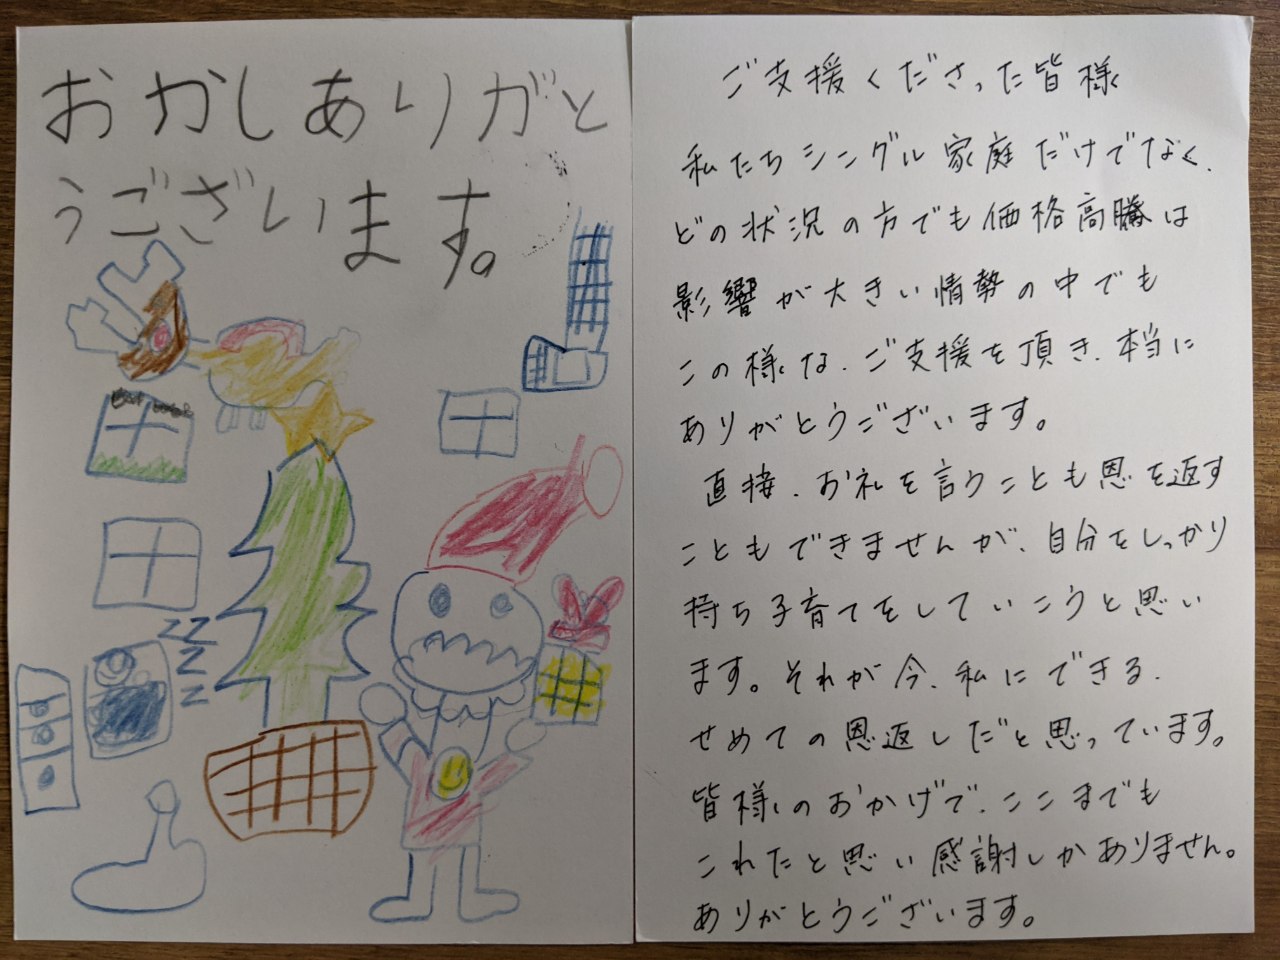 おかしありがと
うございます。
zzzz
ご支援くださった皆様
私たちシングル家庭だけでなく、
どの状況の方でも価格高騰は
影響が大きい情勢の中でも
この様な、ご支援を頂き、本当に
ありがとうございます。
直接、お礼を言うことも恩を返す
こともできませんが、自分をしっかり
持ち子育てをしていこうと思い
ます。それが今、私にできる、
せめての恩返しだと思っています。
皆様のおかげで、ここまでも
これたと思い感謝しかありません。
ありがとうございます。